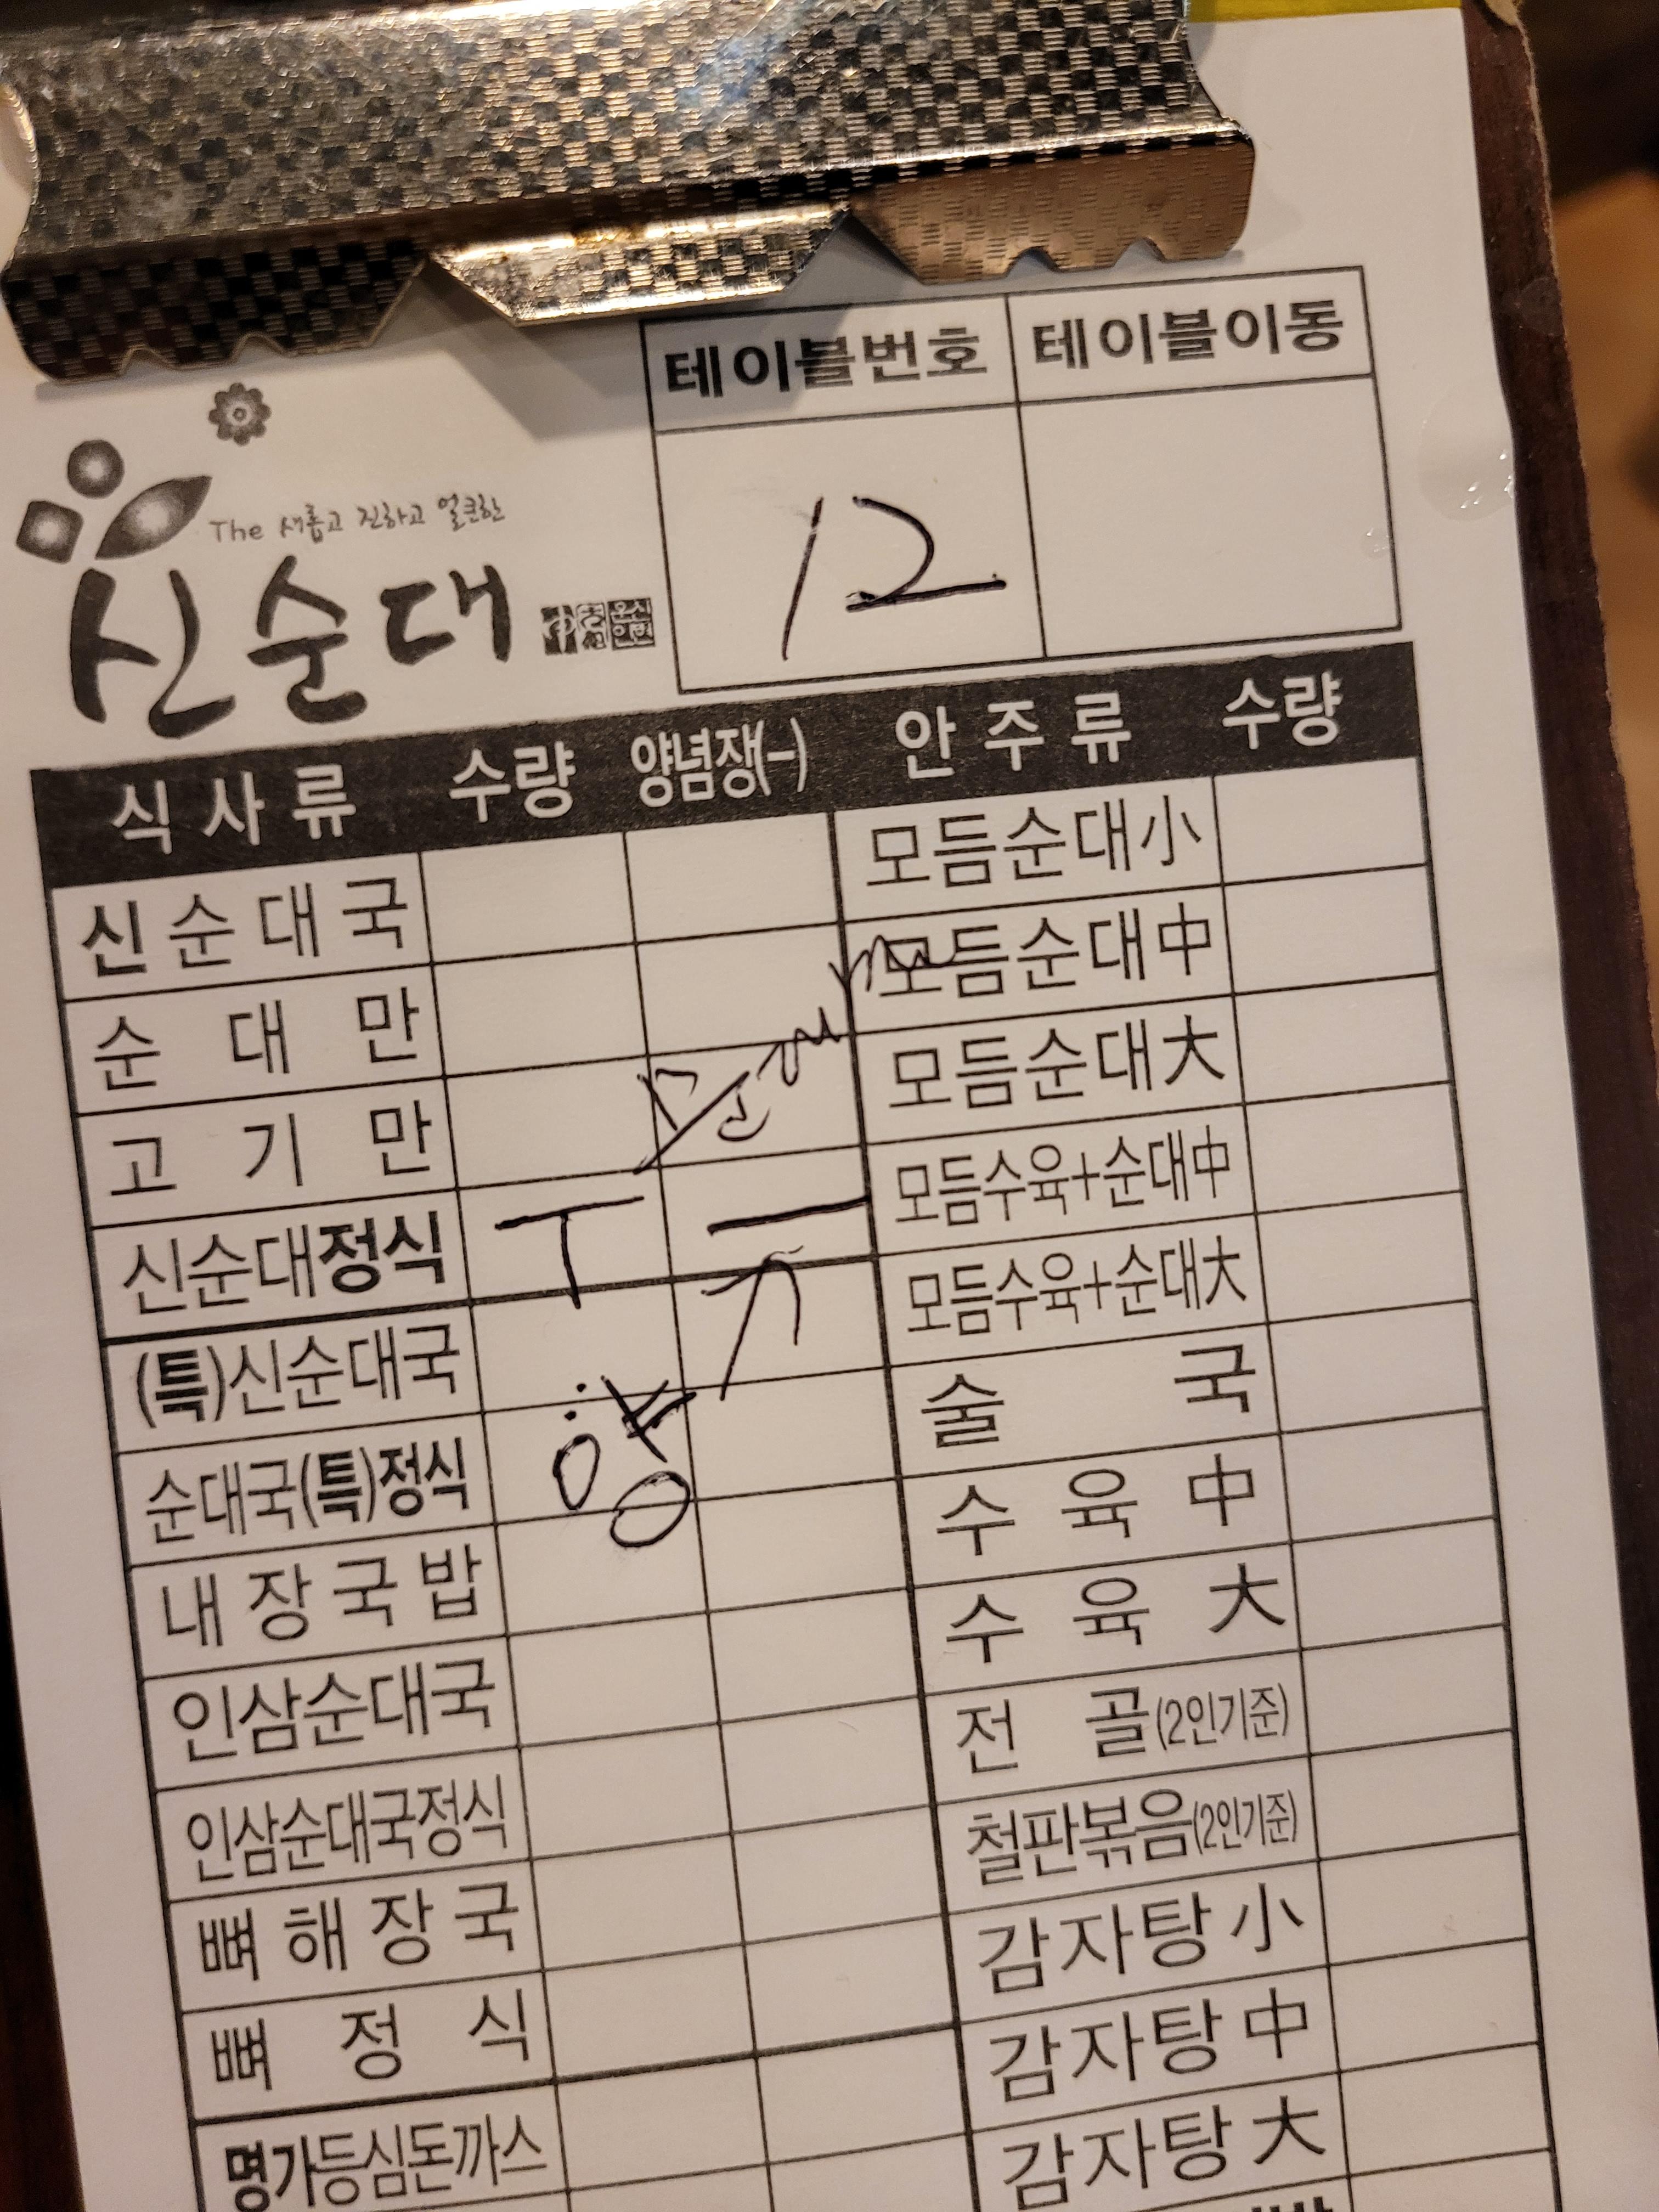 테이블번호 테이블이동
12
The 새롭고 진하고 얼큰한
신순대
식사류 수량 양념장(-) 안주류 수량
신순대국 모듬순대小
순대만 모듬순대中
고기만 모듬순대大
신순대정식 丅 一 모듬수육+순대中
(특)신순대국 모듬수육+순대大
순대국(특)정식 술국
내장국밥 수육中
인삼순대국 수육大
인삼순대국정식 전골(2인기준)
뼈해장국 철판볶음(2인기준)
뼈정식 감자탕小
감자탕中
명가등심돈까스 감자탕大